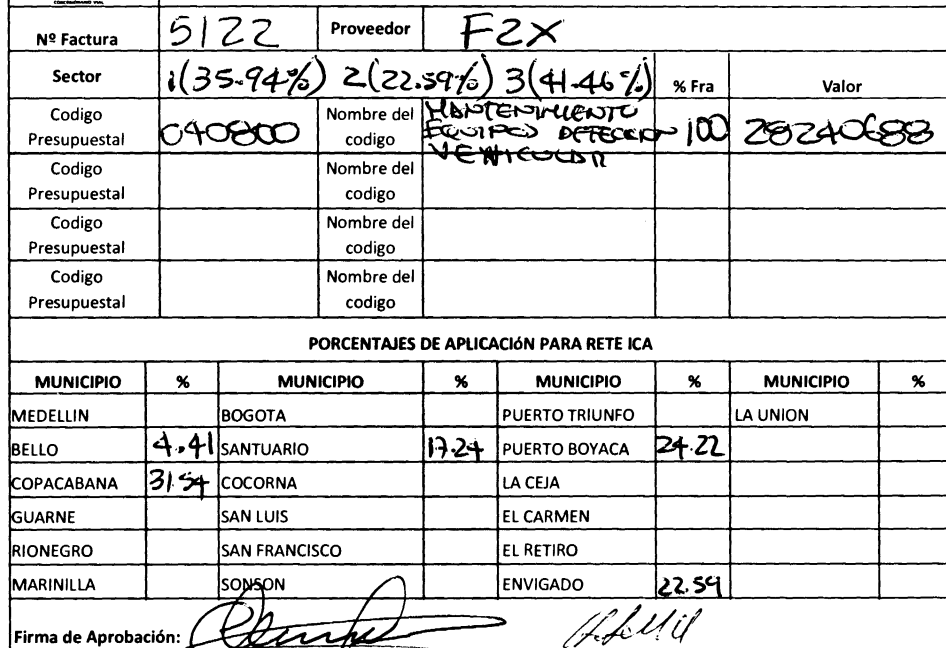 Nº Factura 5122 Proveedor F2X
Sector 1(35.94%) 2(22.59%) 3(41.46%) % Fra Valor
Codigo Presupuestal 040800 Nombre del codigo MANTENIMIENTO EQUIPOS DETECCION VEHICULAR 100 28240688
Codigo Presupuestal Nombre del codigo
Codigo Presupuestal Nombre del codigo
Codigo Presupuestal Nombre del codigo
PORCENTAJES DE APLICACIÓN PARA RETE ICA
MUNICIPIO % MUNICIPIO % MUNICIPIO % MUNICIPIO %
MEDELLIN BOGOTA PUERTO TRIUNFO LA UNION
BELLO 4.41 SANTUARIO 17.24 PUERTO BOYACA 24.22
COPACABANA 31.54 COCORNA LA CEJA
GUARNE SAN LUIS EL CARMEN
RIONEGRO SAN FRANCISCO EL RETIRO
MARINILLA SONSON ENVIGADO 22.59
Firma de Aprobación: